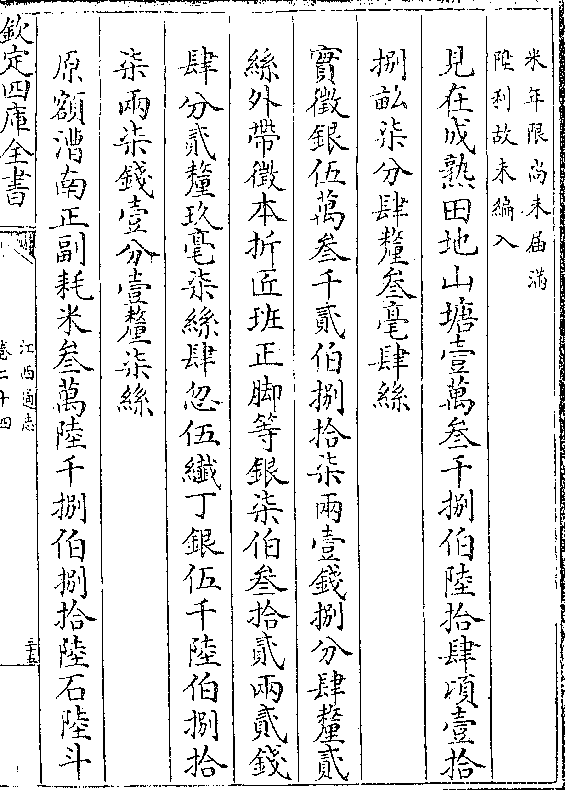 米年限尚未届滿
陞科故未編入
見在成熟田地山塘壹萬叁千捌伯陸拾肆項壹拾
捌畝柒分肆釐叁毫肆絲
實徵銀伍萬叁千貳伯捌拾柒兩壹錢捌分肆釐貳
絲外帶徵本折匠班正脚等銀柒伯叁拾貳兩貳錢
肆分貳釐玖毫柒絲肆忽伍纖丁銀伍千陸伯捌拾
柒兩柒錢壹分壹釐柒絲
原額漕南正副耗米叁萬陸千捌伯捌拾陸石陸斗
欽定四庫全書
江西通志
卷二十四